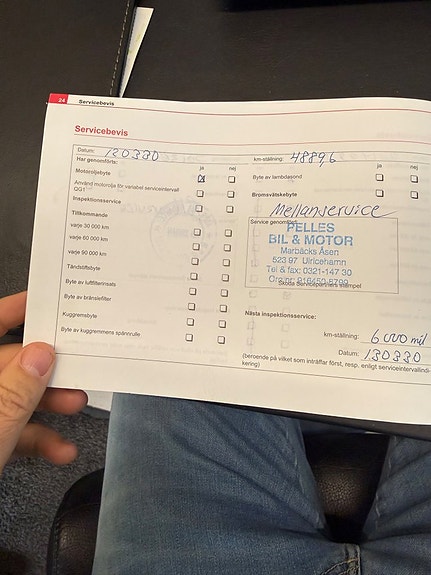 24 Servicebevis
Servicebevis
Datum: 120330 km-ställning: 48896
Har genomförts: ja nej ja nej
Motoroljebyte Byte av lambdasond
Använt motorolja för variabel serviceintervall Bromsvätskebyte
QG1
Inspektionsservice Mellanservice
Tillkommande Service genomförd
varje 30 000 km
varje 60 000 km
varje 90 000 km
Tändstiftsbyte
Byte av luftfilterinsats
Byte av bränslefilter
Kuggremsbyte
Byte av kuggremmens spännrulle
PELLES
BIL & MOTOR
Marbäcks Åsen
523 97 Ulricehamn
Tel & fax: 0321-147 30
Org.nr: 916450-8799
Skoda Servicepartners stämpel
Nästa inspektionsservice:
km-ställning: 6000 mil
Datum: 130330
(beroende på vilket som inträffar först, resp. enligt serviceintervallindi-
kering)